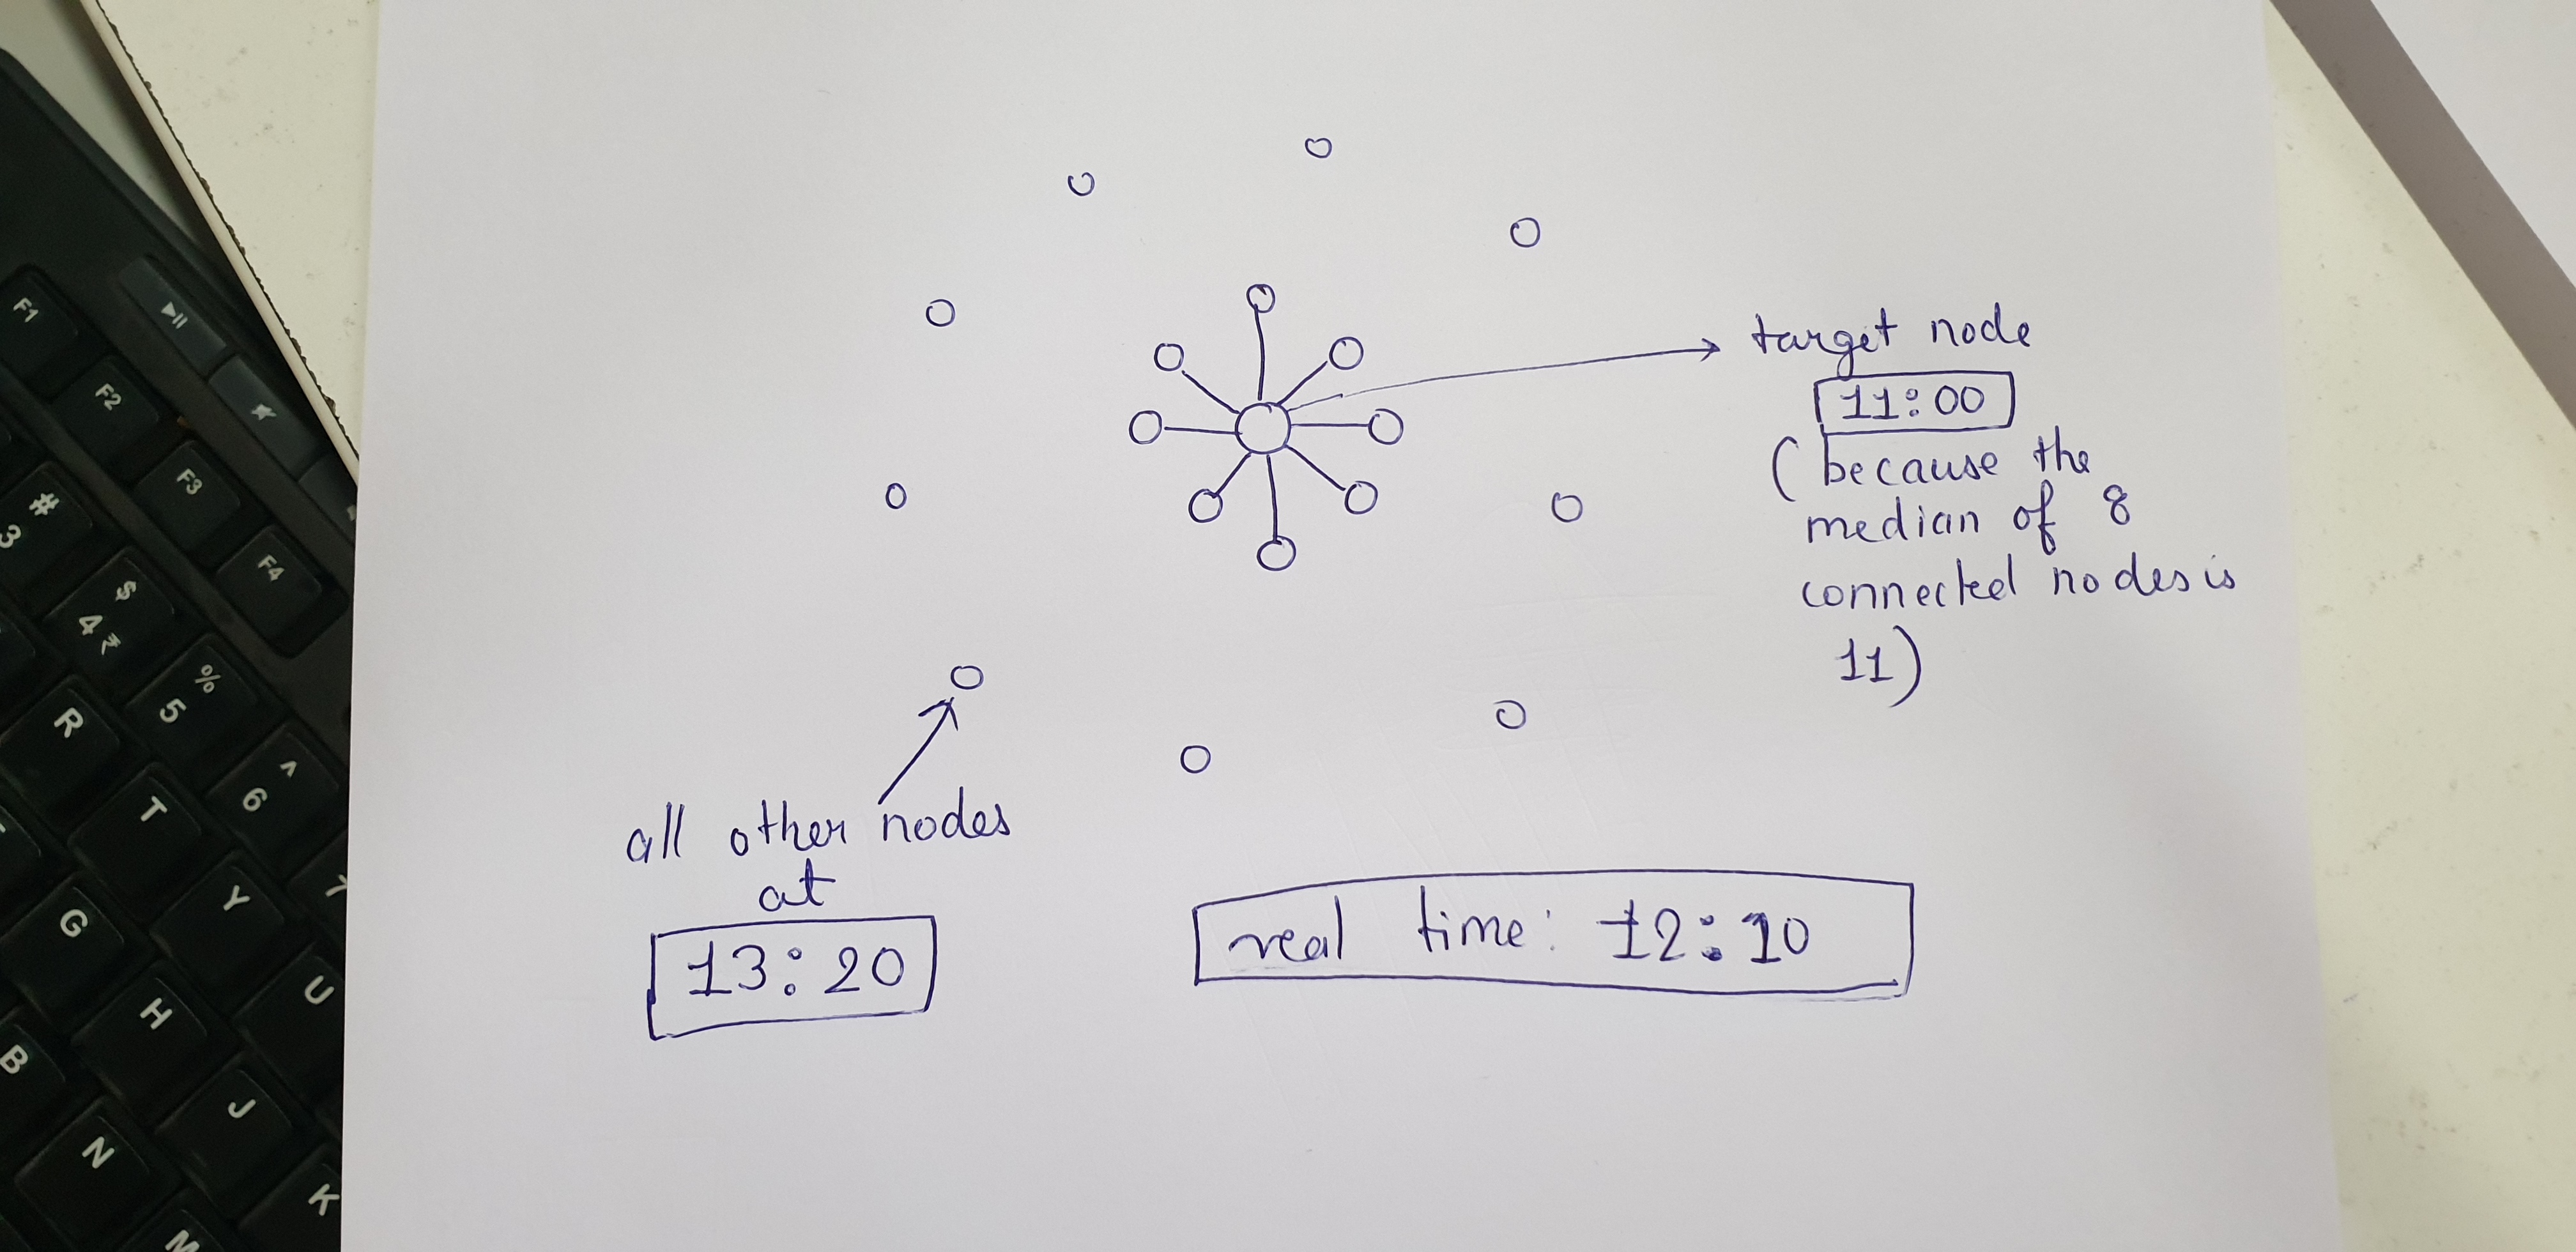 target node
11:00
(because the
median of 8
connected nodes is
11)
all other nodes
at
13:20
real time: 12:10
F1 F2 F3 F4
# $ % ^
3 4 ₹ 5 6 7
R T Y U
G H J K
B N M